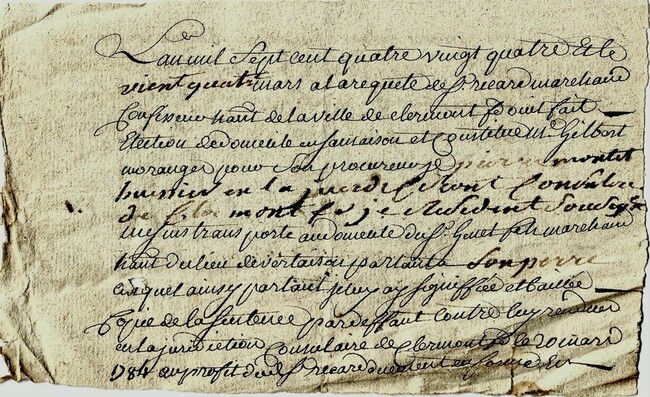 L'an mil sept cent quatre vingt quatre et le
vient quatre mars a la requete de Sr. ricard marchand
Confiseur hant de la ville de clermont fd ou il fait
Election de domicile en sa maison et Constitue Me Gilbert
moranges pour son procureur je pierre montel
huissier en la juridiction Consulaire
de Clermont fd y Resident Soussigné
me suis transporté au domicile du Sr. Genet fils marchand
hant du lieu de vertaison parlant a Son perre
auquel aussy parlant je luy ay signiffiée et baillée
Copie de la Sentence par deffaut contre luy rendue
en la juridiction Consulaire de Clermont fd le 20 mars
1784 au profit dud Sr. ricard duement en forme